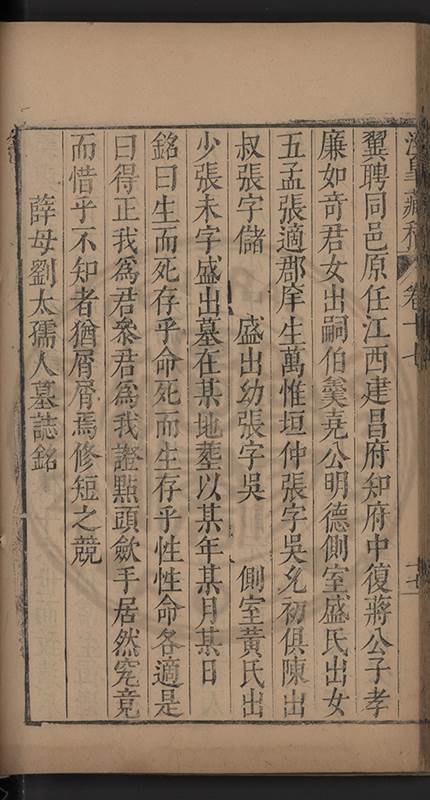 藏稿 卷十七
翼聘同邑原任江西建昌府知府中復蔣公子孝
廉如奇君女出嗣伯羹堯公明德側室盛氏出女
五孟張適郡庠生萬惟垣仲張字吳允初俱陳出
叔張字儲 盛出幼張字吳 側室黃氏出
少張未字盛出墓在某地塟以某年某月某日
銘曰生而死存乎命死而生存乎性性命各適是
曰得正我爲君叅君爲我證點頭歛手居然究竟
而惜乎不知者猶屑屑焉修短之競
薛母劉太孺人墓誌銘